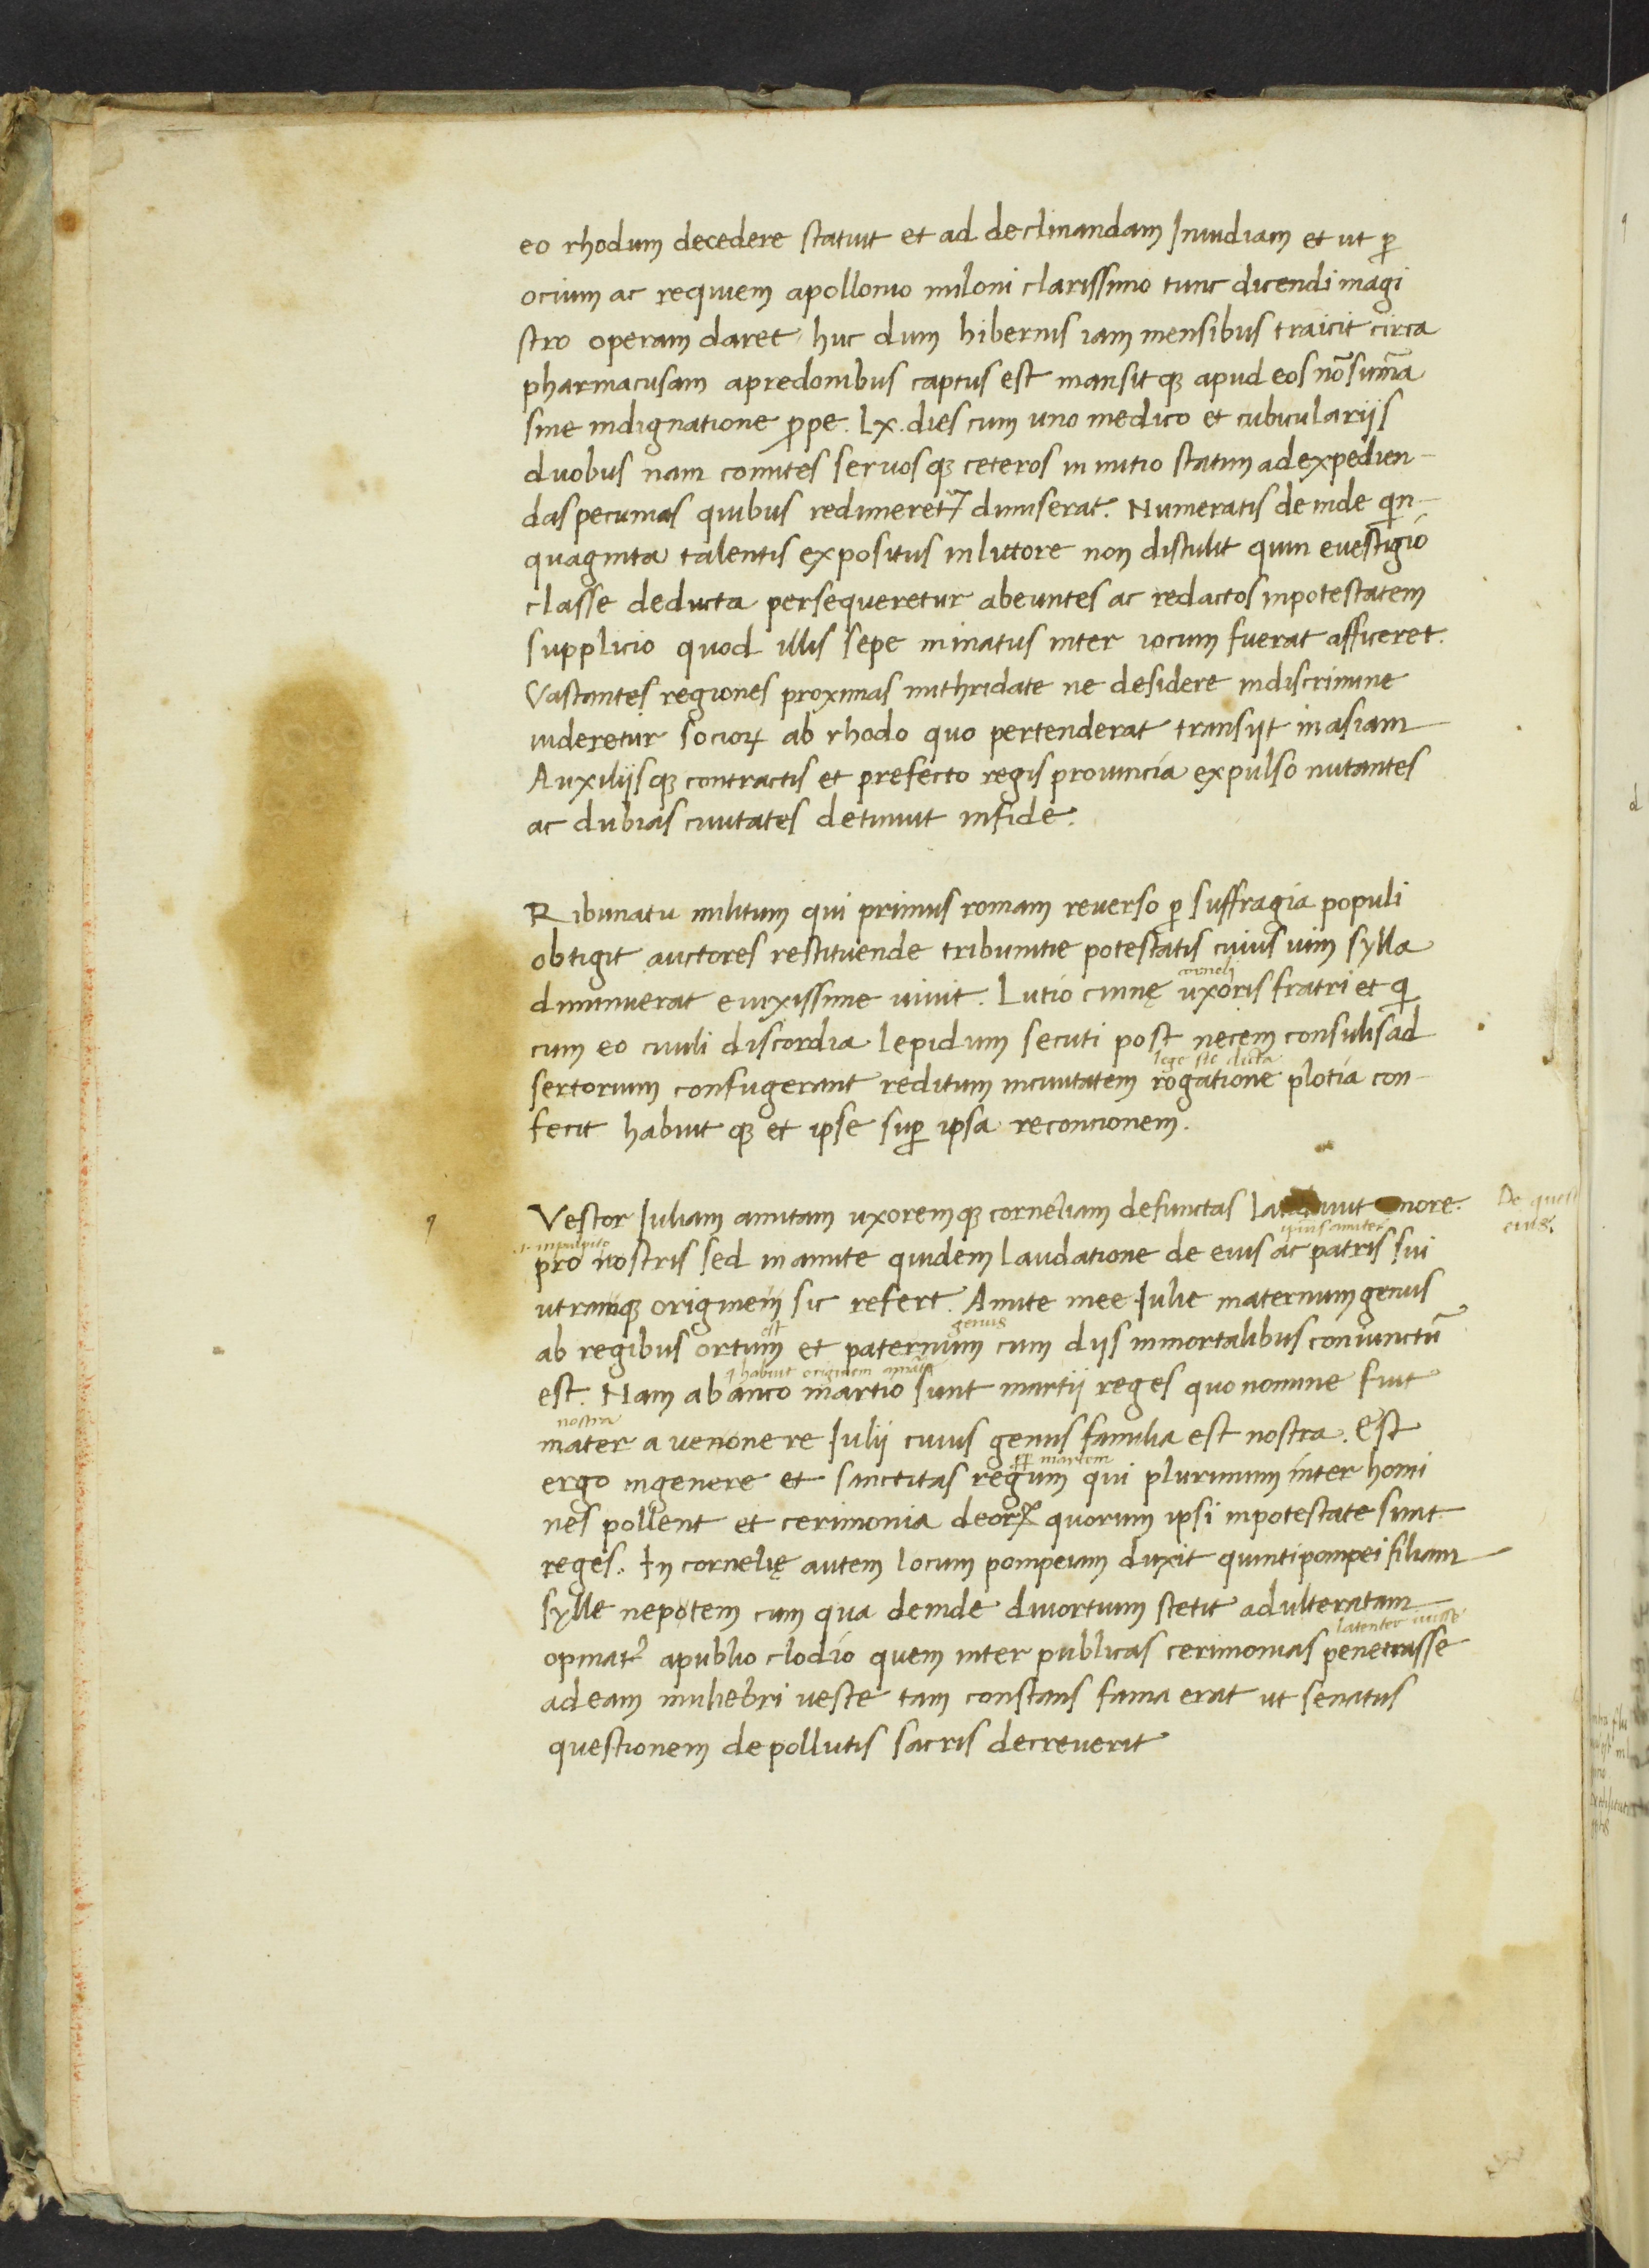 eo rhodum decedere statuit et ad declinandam Inuidiam et ut ꝑ
ocium ac requiem apollonio miloni clarissimo tunc dicendi magi
stro operam daret huc dum hibernis iam mensibus traicit circa
pharmacusam apredonibus captus est mansitqꝫ apud eos nō sum̄a
sine indignatione ꝓpe. lx. dies cum uno medico et cubiculariis
duobus nam comites seruosqꝫ ceteros in initio statim ad expedien-
das pecunias quibus redimeretꝛ dimiserat. Numeratis deinde qin-
quaginta talentis expositus in littore non distulit quin euestigio
classe deducta persequeretur abeuntes ac redactos inpotestatem
supplicio quod illis sepe minatus inter iocum fuerat afficeret.
Vastantes regiones proximas mithridate ne desidere indiscrimine
uideretur socioꝝ ab rhodo quo pertenderat transiit in asiam
Auxiliisqꝫ contractis et prefecto regis prouincia expulso nutantes
ac dubias ciuitates detinuit in fide.
Ribunatu militum qui primus romam reuerso ꝑ suffragia populi
obtigit auctores restituende tribunitie potestatis cuius uim sylla
diminuerat enixissime iuuit. Lutio cinnę uxoris fratri et qi
cum eo ciuili discordia lepidum secuti post necem consulis ad
lege sic dicta
sertorium confugerant reditum inciuitatem rogatione plotia con-
fecit habuitqꝫ et ipse suꝑ ipsa re concionem.
Vestor Iuliam amitam uxoremqꝫ corneliam defunctas
De
eius
pro nostris sed in amite quidem laudatione de eius ac patris sui
utramqꝫ originem sic refert. Amite mee Iulie maternum genus
est genus
ab regibus ortum et paternum cum diis inmortalibus coniunctū
habuit originem
est. Nam ab anco martio sunt martii reges quo nomine fuit
nostra
mater a venonere Iulii cuius genus familia est nostra. Est
ꝑ martem
ergo in genere et sanctitas regum qui plurimum inter homi
nes pollent et cerimonia deoꝝ quorum ipsi inpotestate sunt
reges. In cornelię autem locum pompeiam duxit quinti pompei filiam
sylle nepotem cum qua deinde diuortium stetit adulteratam
latenter iuisse
opinatꝛ apublio clodio quem inter publicas cerimonias penetrasse
ad eam muliebri ueste tam constans fama erat ut senatus
questionem de pollutis sacris decreuerit